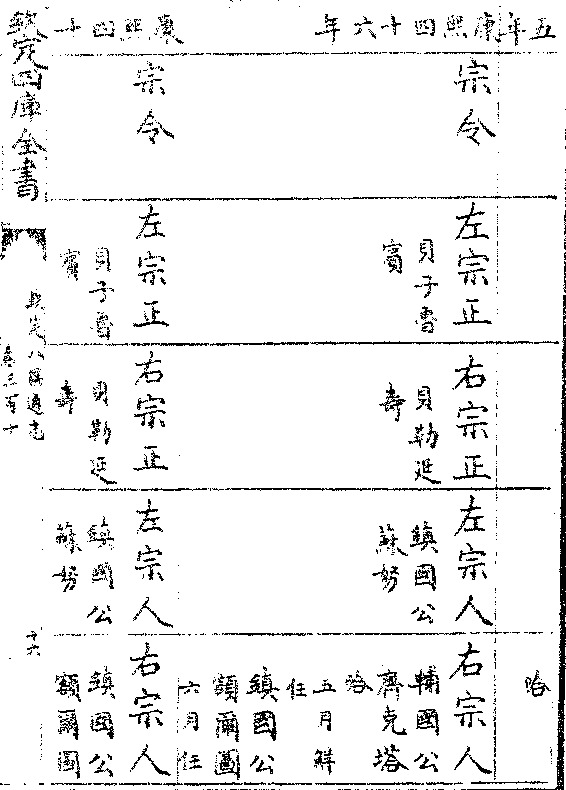 五年
哈
康熙四十六年
宗令
左宗正
貝子魯
賓
右宗正
貝勒延
壽
左宗人
鎮國公
蘇努
右宗人
輔國公
齊克塔
哈
五月解
任
鎮國公
額爾圖
六月任
康熙四十
宗令
左宗正
貝子魯
賓
右宗正
貝勒延
壽
左宗人
鎮國公
蘇努
右宗人
鎮國公
額爾圖
欽定四庫全書
欽定八旗通志
卷三百十
十六